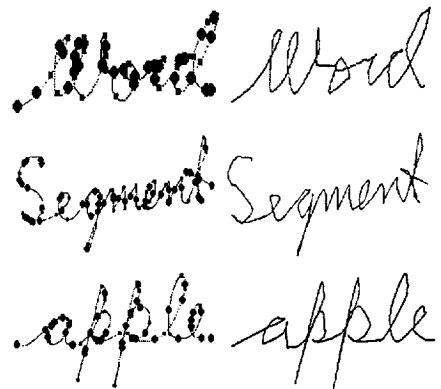 Word Word
Segment Segment
apple apple